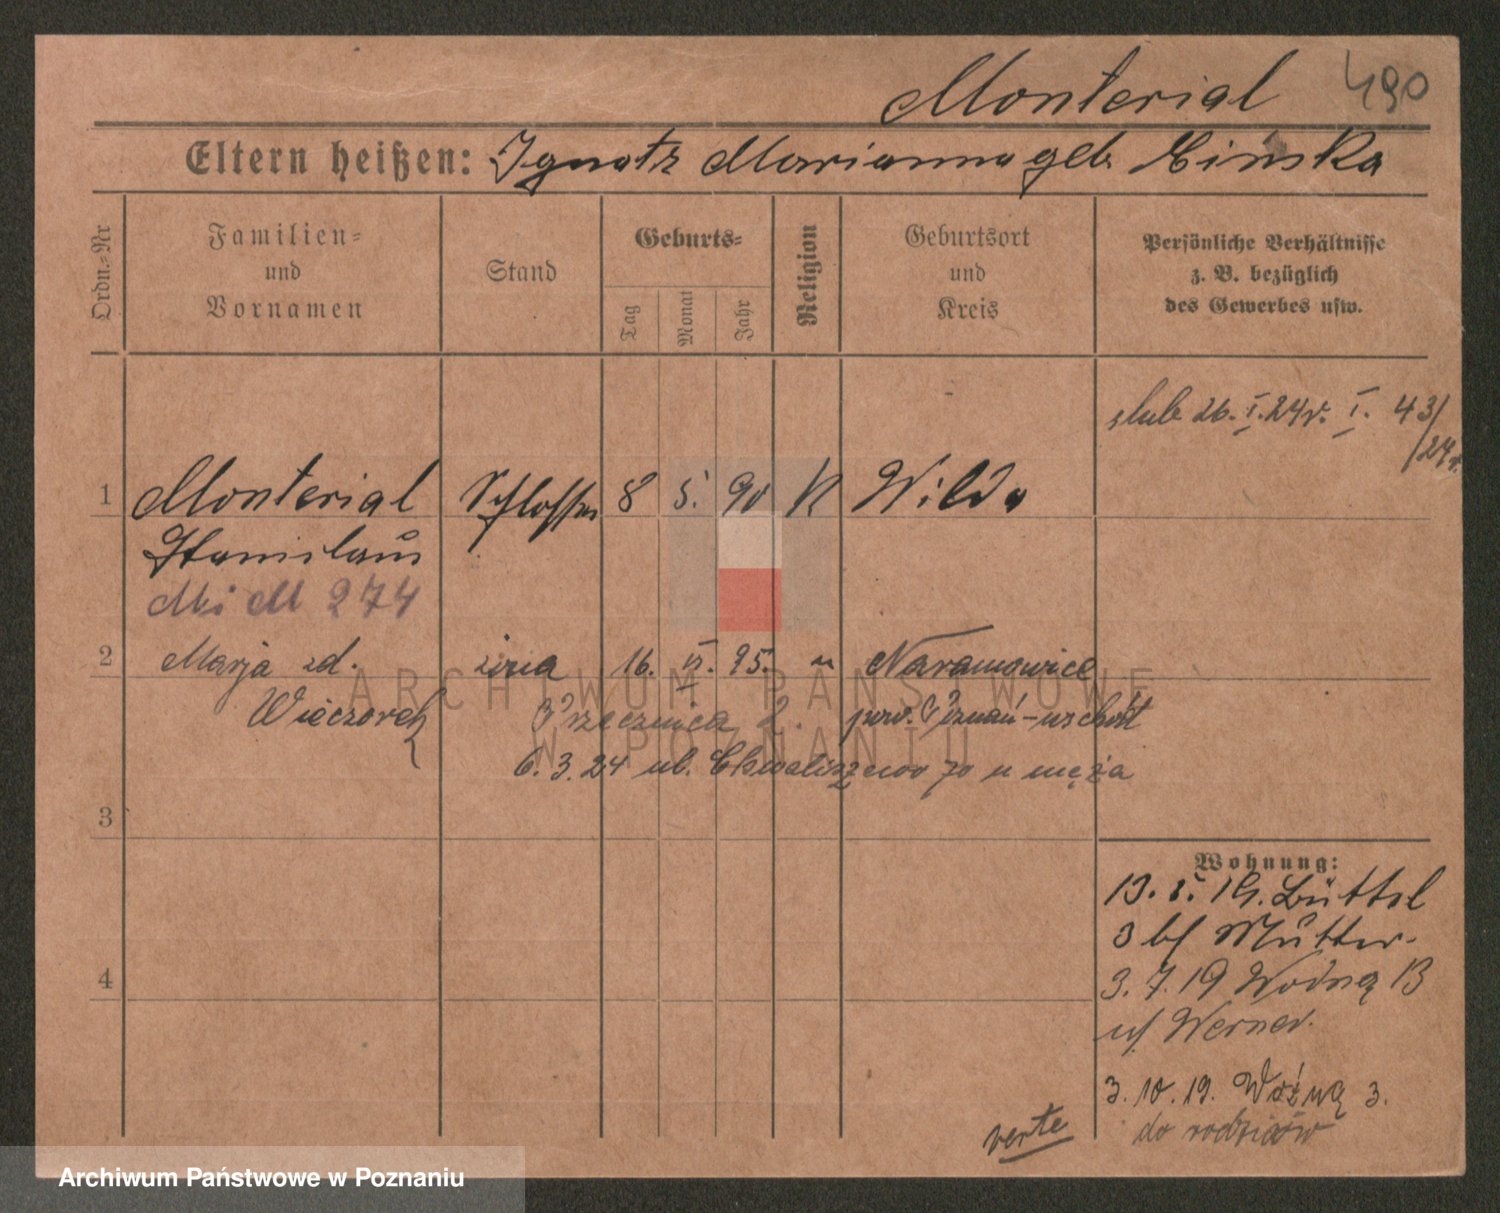 Monterial 490
Eltern heißen: Ignatz Marianna geb. Cinska
Ordn.-Nr
Familien-
und
Vornamen
Stand
Geburts-
Tag
Monat
Jahr
Religion
Geburtsort
und
Kreis
Persönliche Verhältnisse
z. B. bezüglich
des Gewerbes usw.
ślub 26. I. 24 r. I. 43/
/24 r.
1 Monterial Schlosser 8 5. 90 K Wilda
Stanislaus
M 274
2 Marja zd. żona 16. 95. " Naramowice
Wieczorek 2. pow. Poznań-wschód
6. 3. 24 ul. Chwaliszewo 70 u męża
3
4
Wohnung:
13. 5. 19. Büttel
3 b/ Mutter.
3. 7. 19 Wodną 13
u/ Werner.
3. 10. 19. Woźną 3.
do rodziców
verte
ARCHIWUM PAŃSTWOWE
W POZNANIU
Archiwum Państwowe w Poznaniu